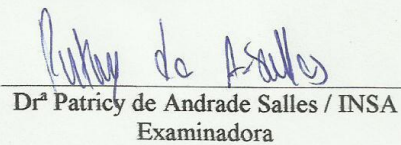 Patricy de A. Salles
Drª Patricy de Andrade Salles / INSA
Examinadora